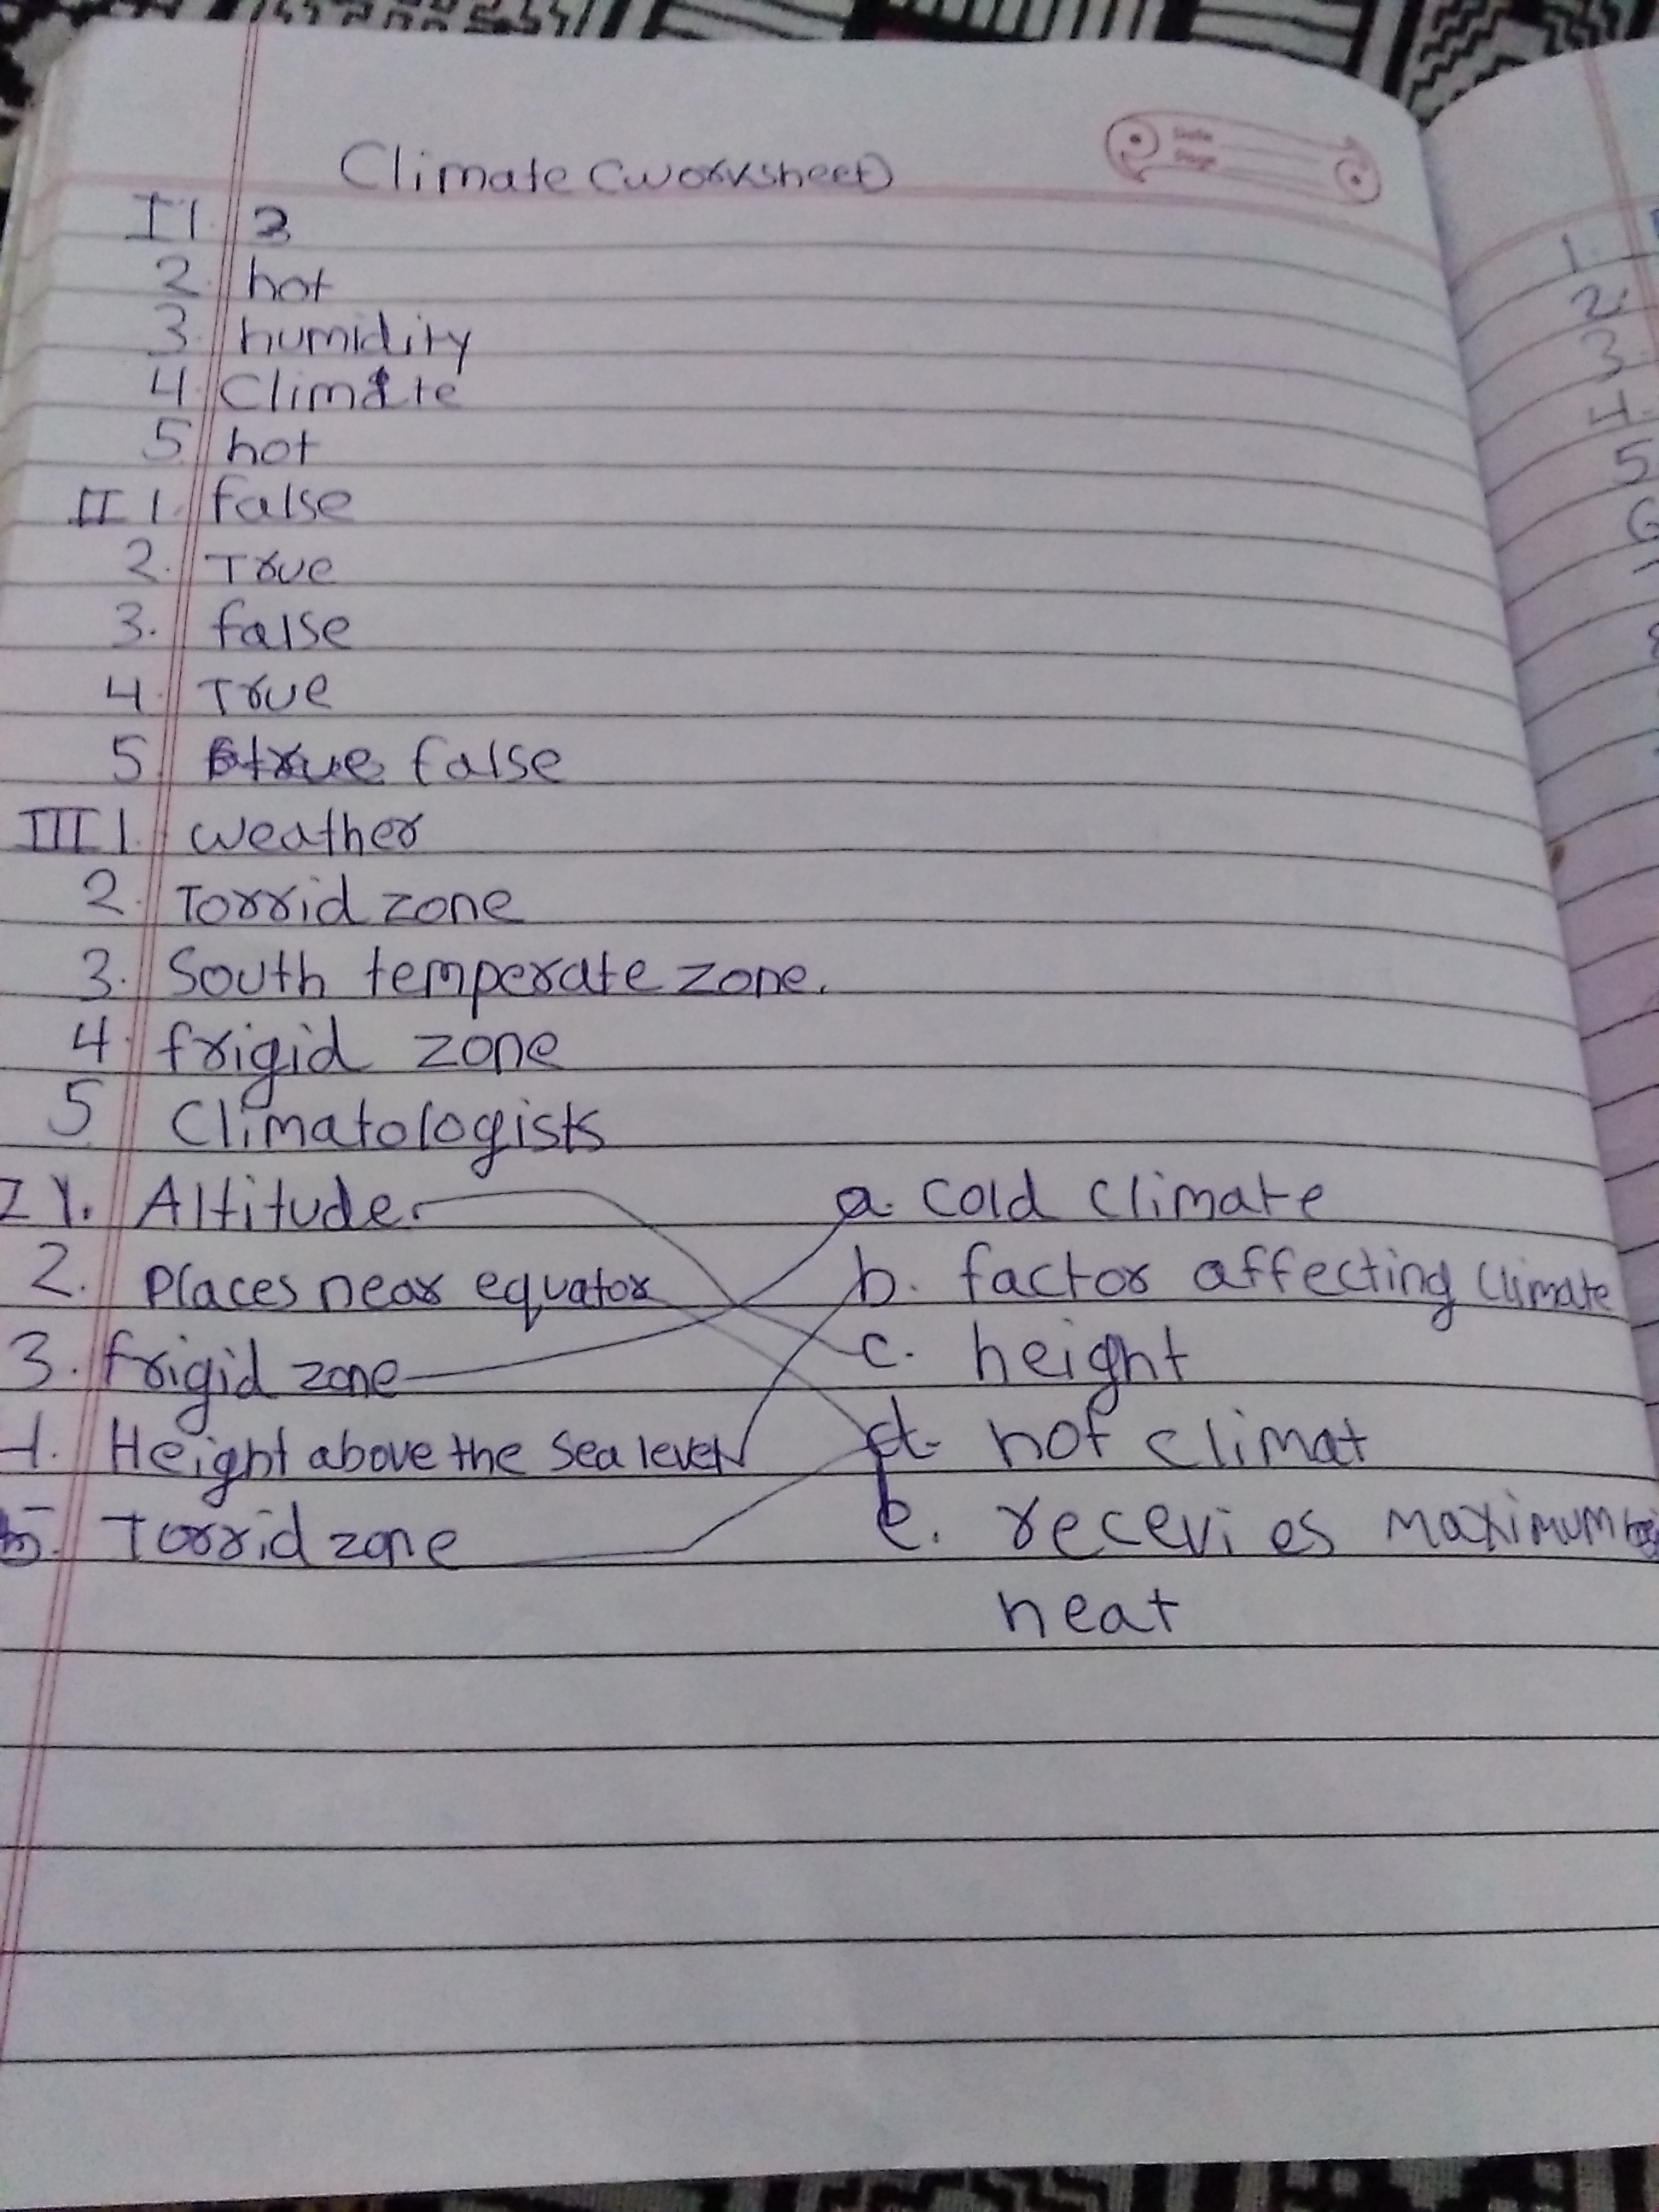 Date
Page
Climate (worksheet)
I 1. 3
2. hot
3. humidity
4. Climate
5. hot
II 1. false
2. True
3. false
4. True
5. false
III 1. weather
2. Torrid zone
3. South temperate zone.
4. frigid zone
5 Climatologists
1. Altitude. a. cold climate
2. Places near equator b. factor affecting climate
3. frigid zone c. height
4. Height above the sea level d. hot climat
5. Torrid zone e. recevi es maximum
heat
1.
2.
3.
4.
5
6